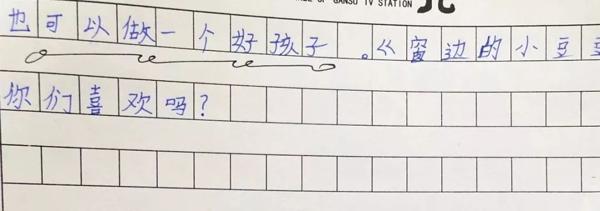 GANSU TV STATION
也可以做一个好孩子。《窗边的小豆豆
你们喜欢吗？